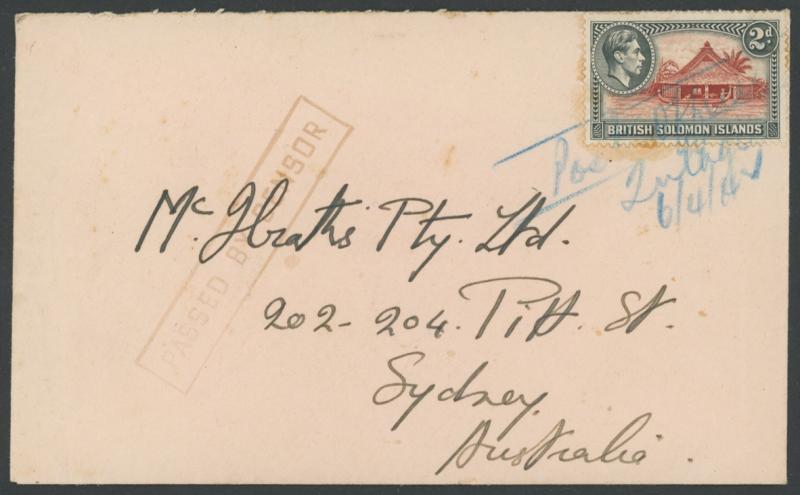 2d
BRITISH SOLOMON ISLANDS
Post Office
Tulagi
6/4/42
PASSED BY CENSOR
Mc. Graths Pty. Ltd.
202-204. Pitt. St.
Sydney
Australia.